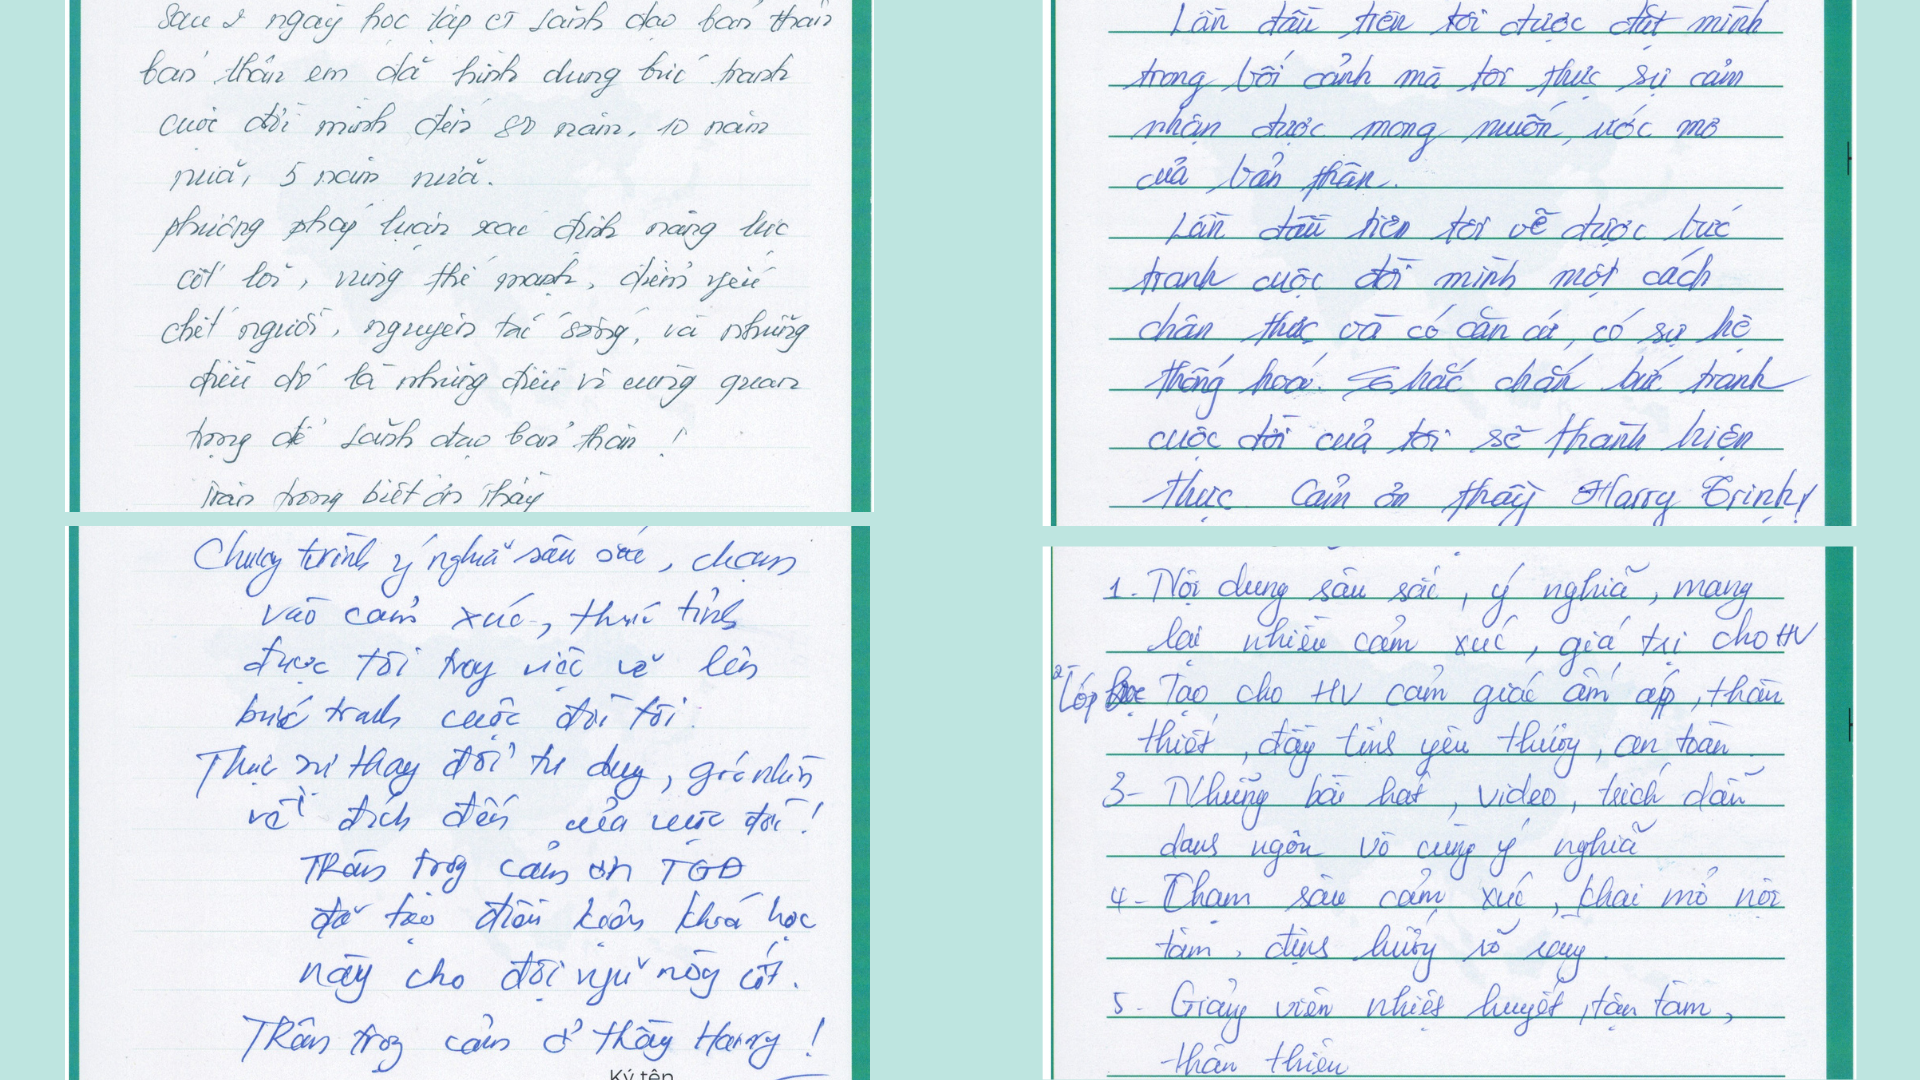 Sau 2 ngày học tập CT Lãnh đạo bản thân
bản thân em đã hình dung bức tranh
cuộc đời mình đến 80 năm, 10 năm
nữa, 5 năm nữa.
phương pháp luận xác định năng lực
cốt lõi, vùng thế mạnh, điểm yếu
chết người, nguyên tắc sống, và những
điều đó là những điều vô cùng quan
trọng để Lãnh đạo bản thân !
Trân trọng biết ơn Thầy
Chương trình ý nghĩa sâu sắc, chạm
vào cảm xúc, thức tỉnh
được tôi trong việc vẽ lên
bức tranh cuộc đời tôi.
Thực sự thay đổi tư duy, góc nhìn
về đích đến của cuộc đời !
Trân trọng cảm ơn TGĐ
đã tạo điều kiện khoá học
này cho đội ngũ nòng cốt.
Trân trọng cảm ơn thầy Harry !
Ký tên
Lần đầu tiên tôi được đặt mình
trong bối cảnh mà tôi thực sự cảm
nhận được mong muốn, ước mơ
của bản thân.
Lần đầu tiên tôi vẽ được bức
tranh cuộc đời mình một cách
chân thực và có căn cứ, có sự hệ
thống hoá. Chắc chắn bức tranh
cuộc đời của tôi sẽ thành hiện
thực. Cảm ơn thầy Harry Trinh!
1. Nội dung sâu sắc, ý nghĩa, mang
lại nhiều cảm xúc, giá trị cho HV
2. Lớp học Tạo cho HV cảm giác ấm áp, thân
thiết, đầy tình yêu thương, an toàn.
3- Những bài hát, video, trích dẫn
danh ngôn vô cùng ý nghĩa
4- Chạm sâu cảm xúc, khai mở nội
tâm, định hướng rõ ràng.
5- Giảng viên nhiệt huyết, tận tâm,
thân thiện